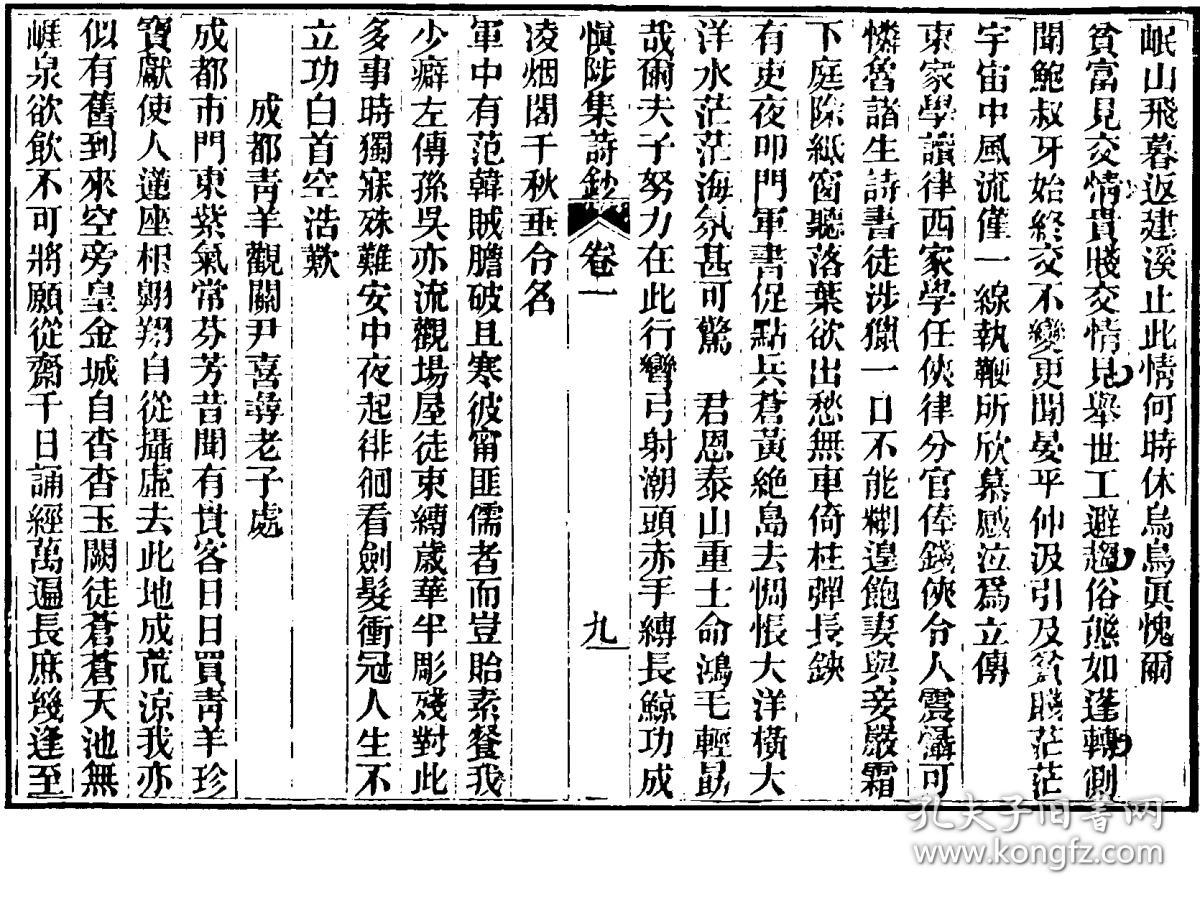 岷山飛暮返建溪止此情何時休烏烏眞愧爾
貧富見交情貴賤交情見舉世工避趨俗態如蓬轉側
聞鮑叔牙始終交不變更聞晏平仲汲引及貧賤茫茫
宇宙中風流僅一線執鞭所欣慕感泣爲立傳
東家學讀律西家學任俠律分官俸錢俠令人震懾可
憐魯諸生詩書徒涉獵一口不能糊遑飽妻與妾嚴霜
下庭除紙窗聽落葉欲出愁無車倚柱彈長鋏
有吏夜叩門軍書促點兵蒼黃絶島去惆悵大洋橫大
洋水茫茫海氛甚可驚 君恩泰山重士命鴻毛輕勗
哉爾夫子努力在此行彎弓射潮頭赤手縛長鯨功成
愼陟集詩鈔 卷一 九
凌烟閣千秋垂令名
軍中有范韓賊膽破且寒彼甯匪儒者而豈貽素餐我
少癖左傳孫吳亦流觀場屋徒束縛歲華半彫殘對此
多事時獨寐殊難安中夜起徘徊看劍髮衝冠人生不
立功白首空浩歎
成都靑羊觀關尹喜尋老子處
成都市門東紫氣常芬芳昔聞有貴客日日買靑羊珍
寶獻使人蓮座相翺翔自從攝虛去此地成荒涼我亦
似有舊到來空旁皇金城自杳杳玉闕徒蒼蒼天池無
崕泉欲飮不可將願從齋千日誦經萬遍長庶幾逢至
孔夫子旧书网
www.kongfz.com